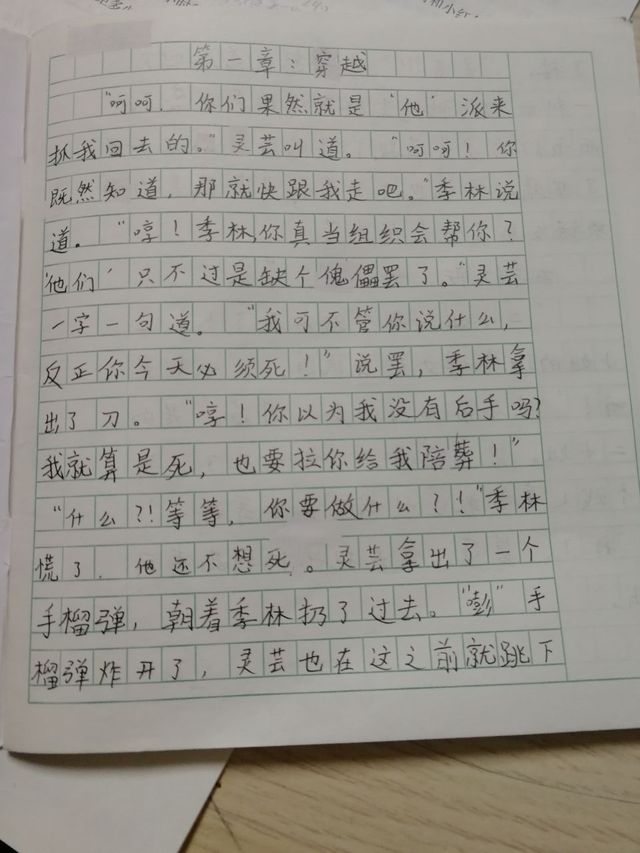 和小红.
第一章：穿越
“呵呵．你们果然就是‘他’派来
抓我回去的。”灵芸叫道。“呵呵！你
既然知道，那就快跟我走吧。”季林说
道。“哼！季林，你真当组织会帮你？
‘他们’只不过是缺个傀儡罢了。”灵芸
一字一句道。“我可不管你说什么，
反正你今天必须死！”说罢，季林拿
出了刀。“哼！你以为我没有后手吗？
我就算是死，也要拉你给我陪葬！”
“什么？！等等，你要做什么？！”季林
慌了．他还不想死。灵芸拿出了一个
手榴弹，朝着季林扔了过去。“嘭”手
榴弹炸开了，灵芸也在这之前就跳下